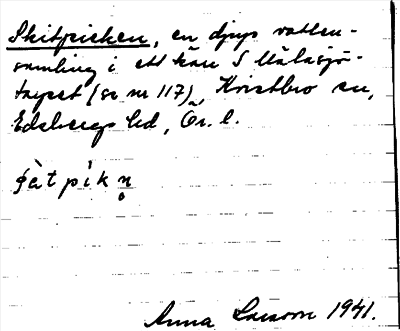 Skitpicken, en djup vatten-
samling i ett kärr S Mälasjö-
torpet (se nr 117), Kvistbro sn,
Edsbergs hd, Ör. l.
ʂɛ̀tpìkn̥
Anna Larsson 1941.